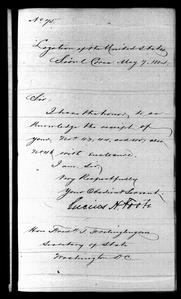 No 75.
Legation of the United States
Seoul Corea May 7. 1884
Sir.
I have the honor, to ac-
knowledge the receipt of
your, Nos 43, 44, and 45, also
No 46 with enclosure.
I am Sir,
Very Respectfully
Your Obedient Servant
Lucius H. Foote
Hon Fredk T. Frelinghuysen
Secretary of State
Washington D.C.